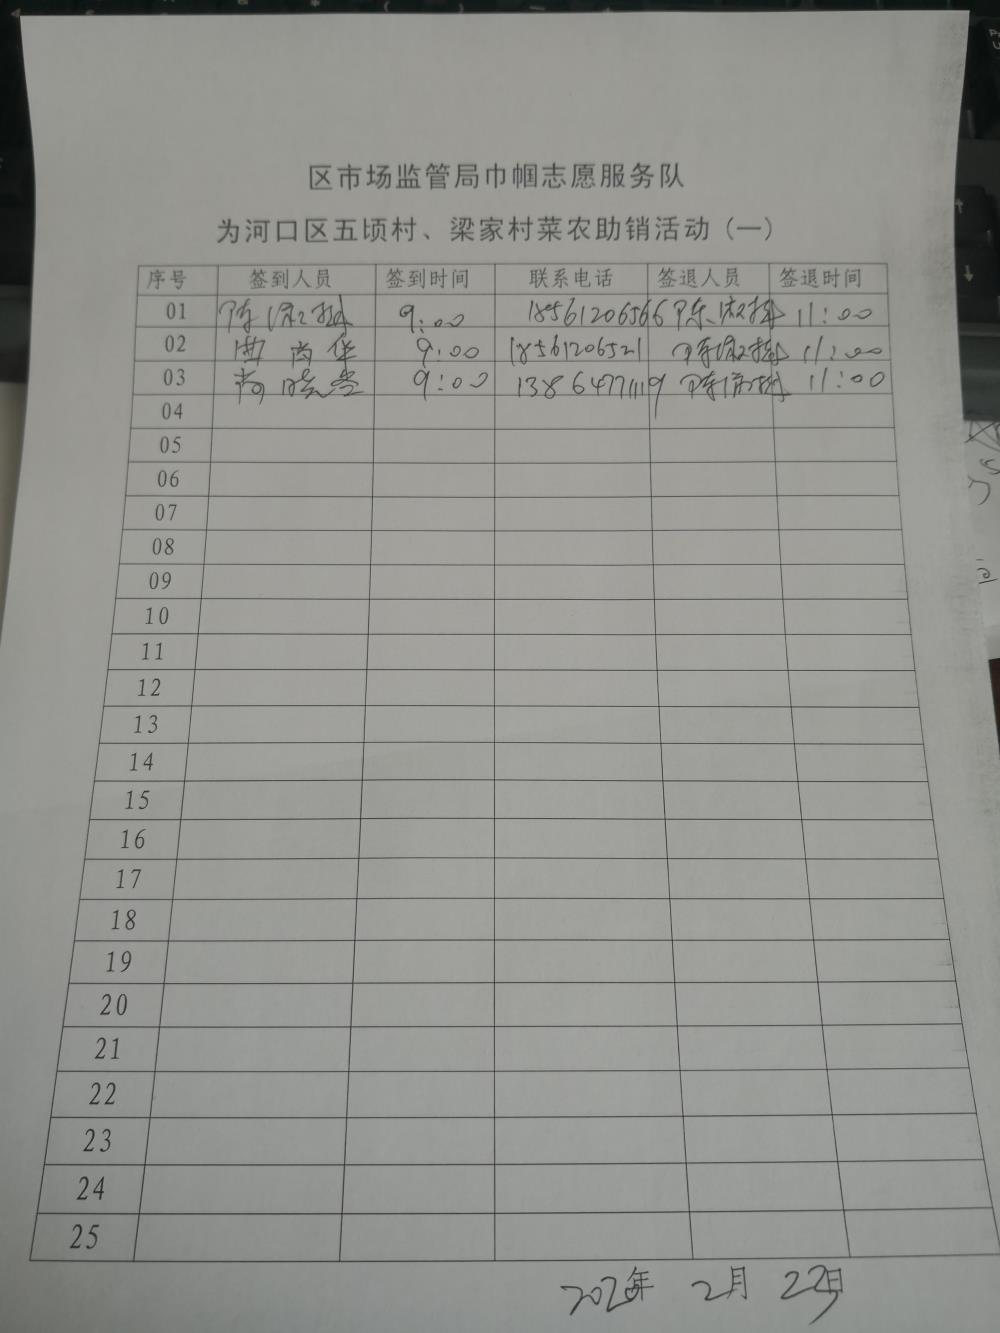 区市场监管局巾帼志愿服务队
为河口区五顷村、梁家村菜农助销活动（一）
序号 签到人员 签到时间 联系电话 签退人员 签退时间
01 陈 9:00 18561206566 陈 11:00
02 曲尚华 9:00 18561206521 陈 11:00
03 尚晓堂 9:00 13864771119 陈 11:00
04
05
06
07
08
09
10
11
12
13
14
15
16
17
18
19
20
21
22
23
24
25
年 2月 22日